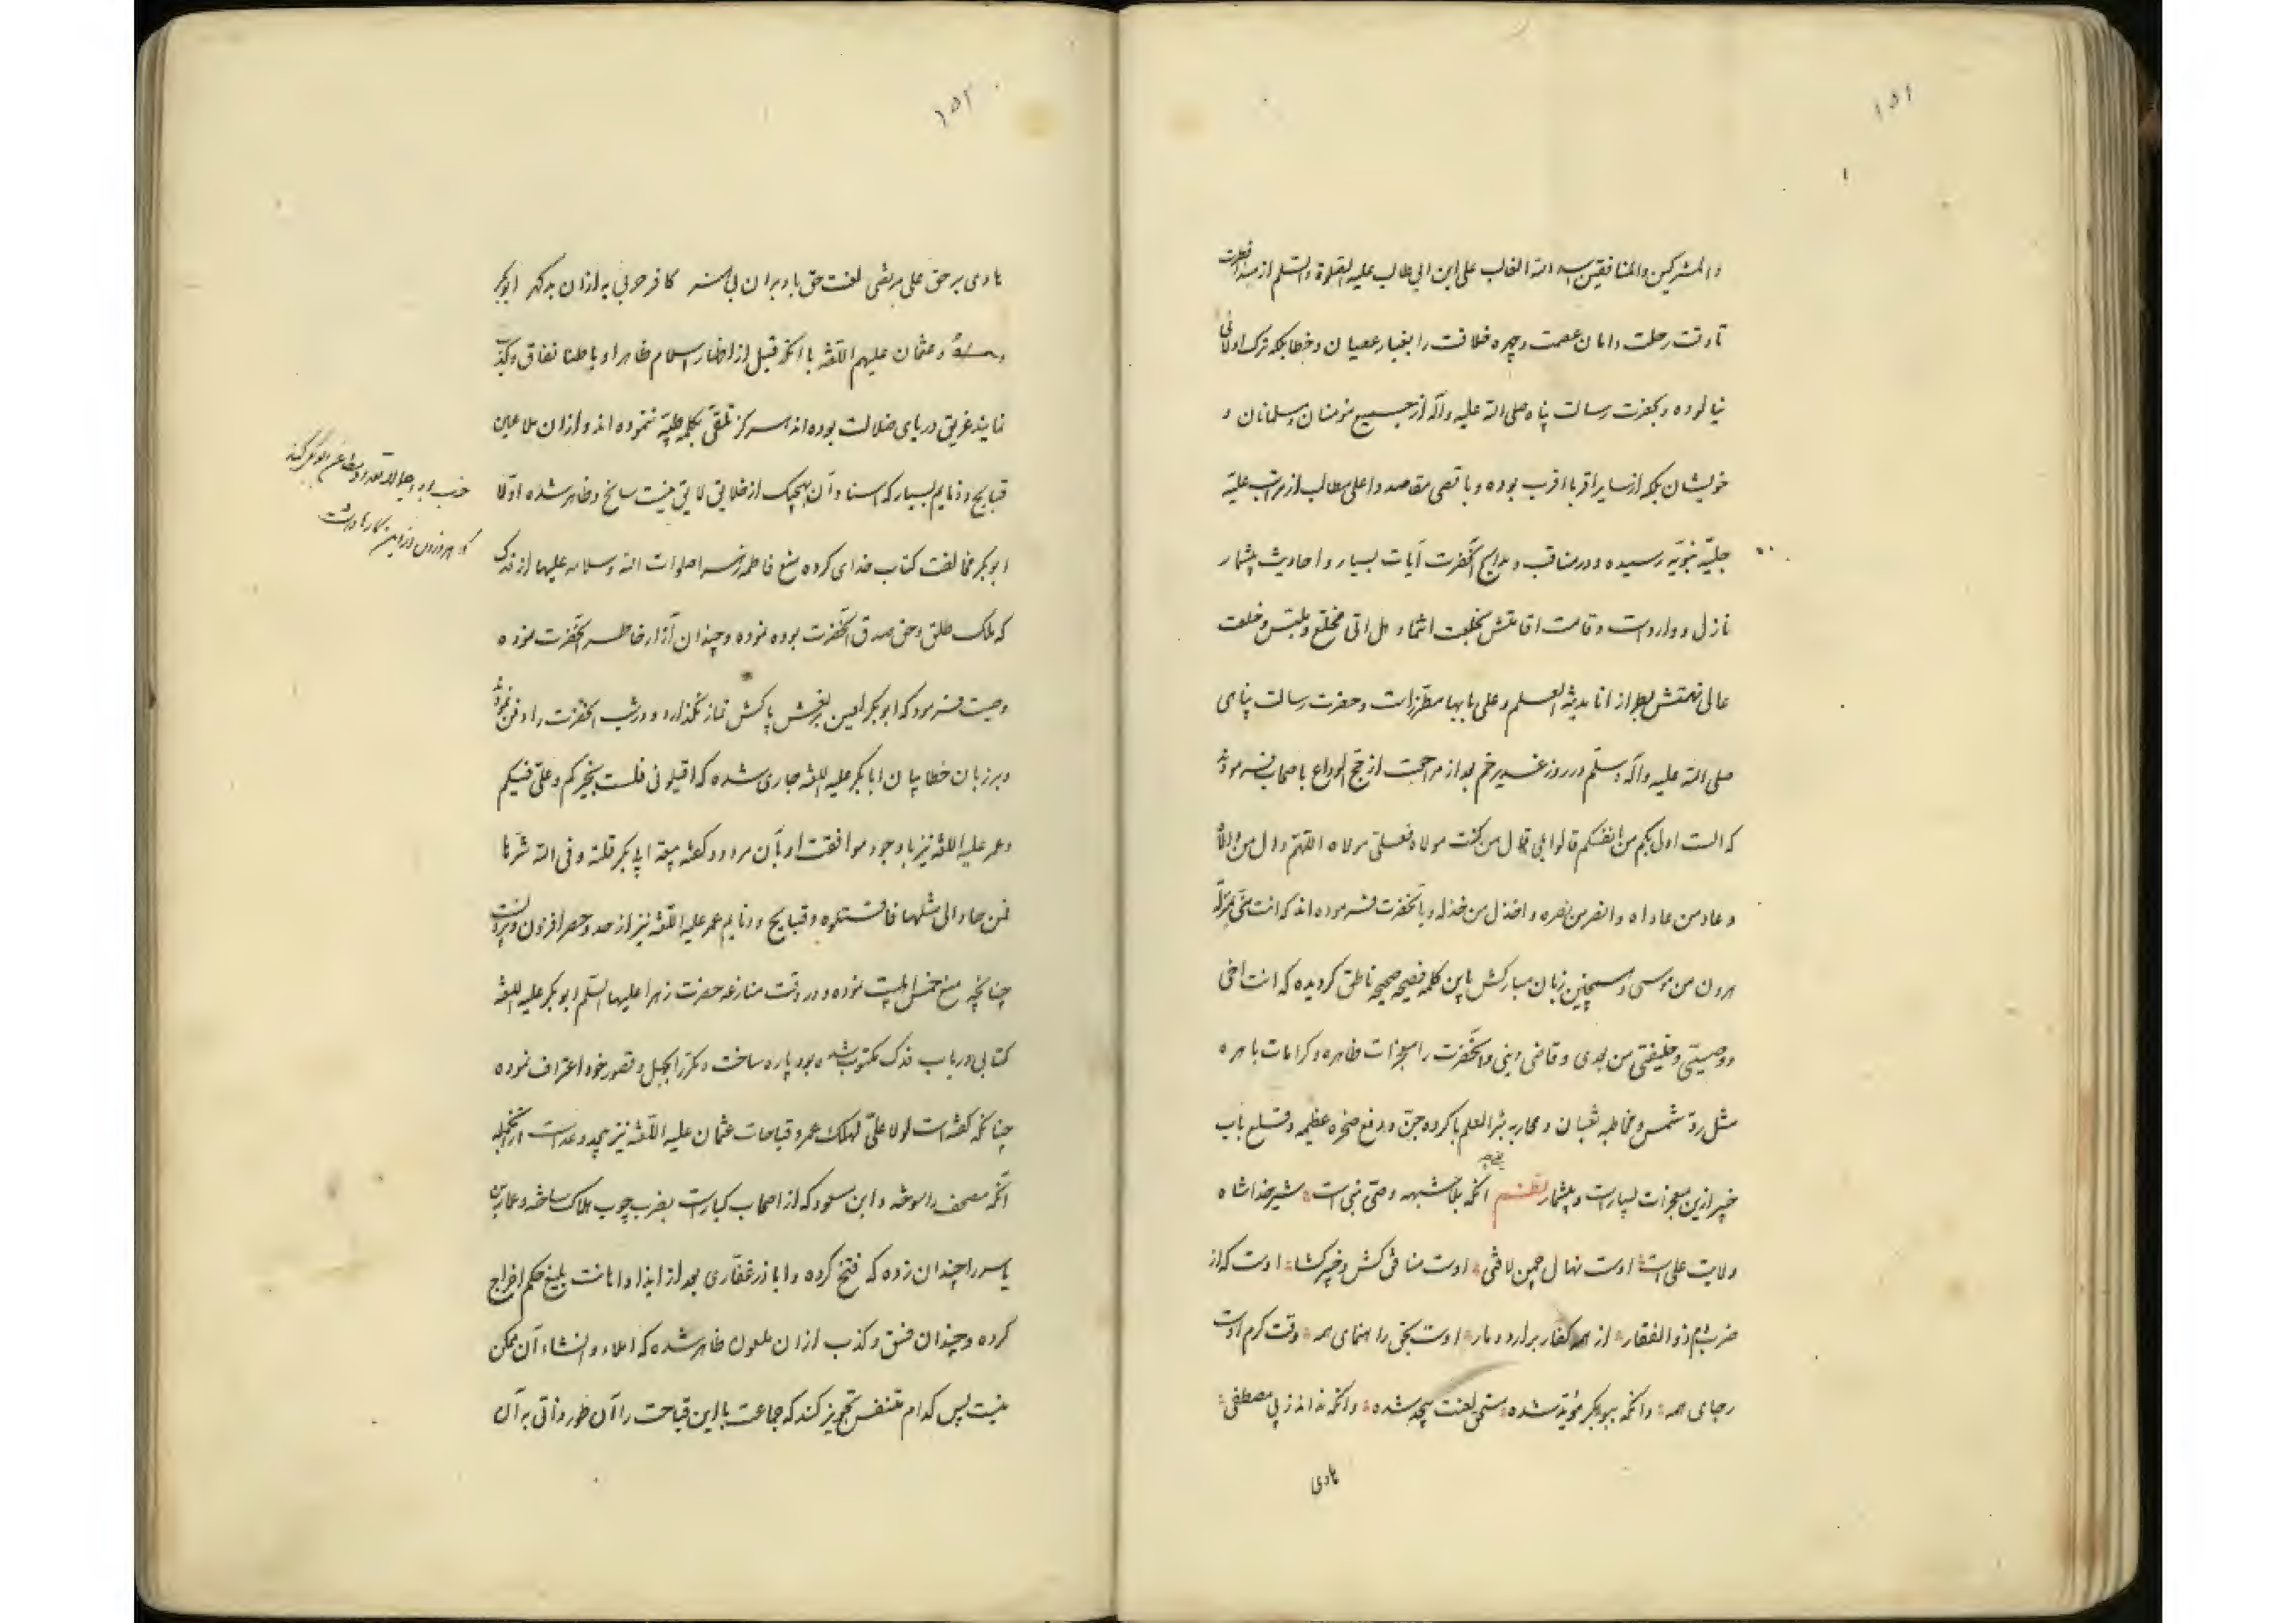 ۱۵۱
والمشرکین والمنافقین اسد الله الغالب علی ابن ابی طالب علیه الصلوة والسلم از مبدأ فطرت
تا وقت رحلت دامان عصمت وچهره خلافت را بغبار عصیان وخطا بلکه ترک اولائی
نیالوده وبحضرت رسالت پناه صلی الله علیه وآله از جمیع مؤمنان ومسلمانان و
خویشان بلکه از سایر اقربا اقرب بوده وباقصی مقاصد واعلی مطالب از مراتب علیه
جلیّه نبویّه رسیده ودر مناقب ومدایح آنحضرت آیات بسیار واحادیث بیشمار
نازل ووارد است وقامت اقامتش بخلعت انما وهل اتی مخلّع وملبّس وخلعت
عالی نهمتش بطراز انا مدینة العلم وعلی بابها مطرّز است وحضرت رسالت پناهی
صلی الله علیه وآله وسلّم در روز غدیر خم بعد از مراجعت از حج الوداع باصحاب فرموده
که الست اولی بکم من انفسکم قالوا بلی قال من کنت مولاه فعلی مولاه اللهمّ وال من والاه
وعاد من عاداه وانصر من نصره واخذل من خذله وبآنحضرت فرموده اند که انت منّی بمنزلة
هرون من موسی وهمچنین زبان مبارکش باین کلمه فصیحه صحیحه ناطق کردیده که انت اخی
ووصیّی وخلیفتی من بعدی وقاضی دینی وآنحضرت را معجزات ظاهره وکرامات باهره
مثل ردّ شمس ومخاطبه ثعبان ومحاربه بئر العلم با کروه جن ودفع صخره عظیمه وقلع باب
خیبر ازین معجزات بسیار است وبیشمار نظـم آنکه بلا شبهه وصیّ نبی است شیر خدا شاه
ولایت علی است اوست نهال چمن لافتی اوست منافق کش وخیبر کشا اوست که از
ضرب دم ذوالفقار از همه کفار برآرد دمار اوست بحق راهنمای همه وقت کرم اوست
رجای همه وانکه ببوبکر مؤیّد شده مستحق لعنت بیحد شده وانکه نداند ز پی مصطفی
هادی
۱۵۲
هادی بر حق علی مرتضی لعنت حق باد بران بی هنر کافر حربی به از ان بد کهر ابوبکر
وعمر وعثمان علیهم اللعنه با آنکه قبل از اظهار اسلام ظاهرا وباطنا نفاق وکذب
نمایند غریق دریای ضلالت بوده اند هرکز تلقّی بکلمه طیّبه ننموده اند واز ان ملاعین
قبایح وذمایم بسیار که اسناد آن بهیچیک از خلایق لایق نیست سانح وظاهر شده اولا
ابوبکر مخالفت کتاب خدای کرده منع فاطمه زهرا صلوات الله وسلامه علیها از فدک
که ملک طلق وحق صدق آنحضرت بوده نموده وچندان آزار خاطر آنحضرت نموده
وصیت فرمود که ابوبکر لعین بر نعش پاکش نماز نکذارد ودر شب آنحضرت را دفن نمودند
وبر زبان خطا بیان ابابکر علیه اللعنه جاری شده که اقیلونی فلست بخیرکم وعلیّ فیکم
وعمر علیه اللعنه نیز با وجود موافقت او بآن مردود کفته بیعة ابی بکر فلتة وقی الله شرها
فمن عاد الی مثلها فاقتلوه وقبایح وذمایم عمر علیه اللعنه نیز از حد وحصر افزون وبیرونست
چنانچه منع خمس اهلبیت نموده ودر وقت منازعه حضرت زهرا علیها السلم وابوبکر علیه اللعنه
کتابی در باب فدک مکتوب شده بود پاره ساخت ومکرّر بجهل وقصور خود اعتراف نموده
چنانکه کفته است لولا علیّ لهلک عمر وقباحات عثمان علیه اللعنه نیز بیحد وعد است ازآنجمله
آنکه مصحف را سوخته وابن مسعود که از اصحاب کبار است بضرب چوب هلاک ساخته وعمار بن
یاسر را چندان زده که فتح کرده واباذر غفاری بعد از ایذا واهانت بلیغ حکم اخراج
کرده وچندان فسق وکذب از ان ملعون ظاهر شده که املاء وانشاء آن ممکن
نیست پس کدام متنفس تجویز کند که جماعت با این قباحت را آن طور ذاتی به آن